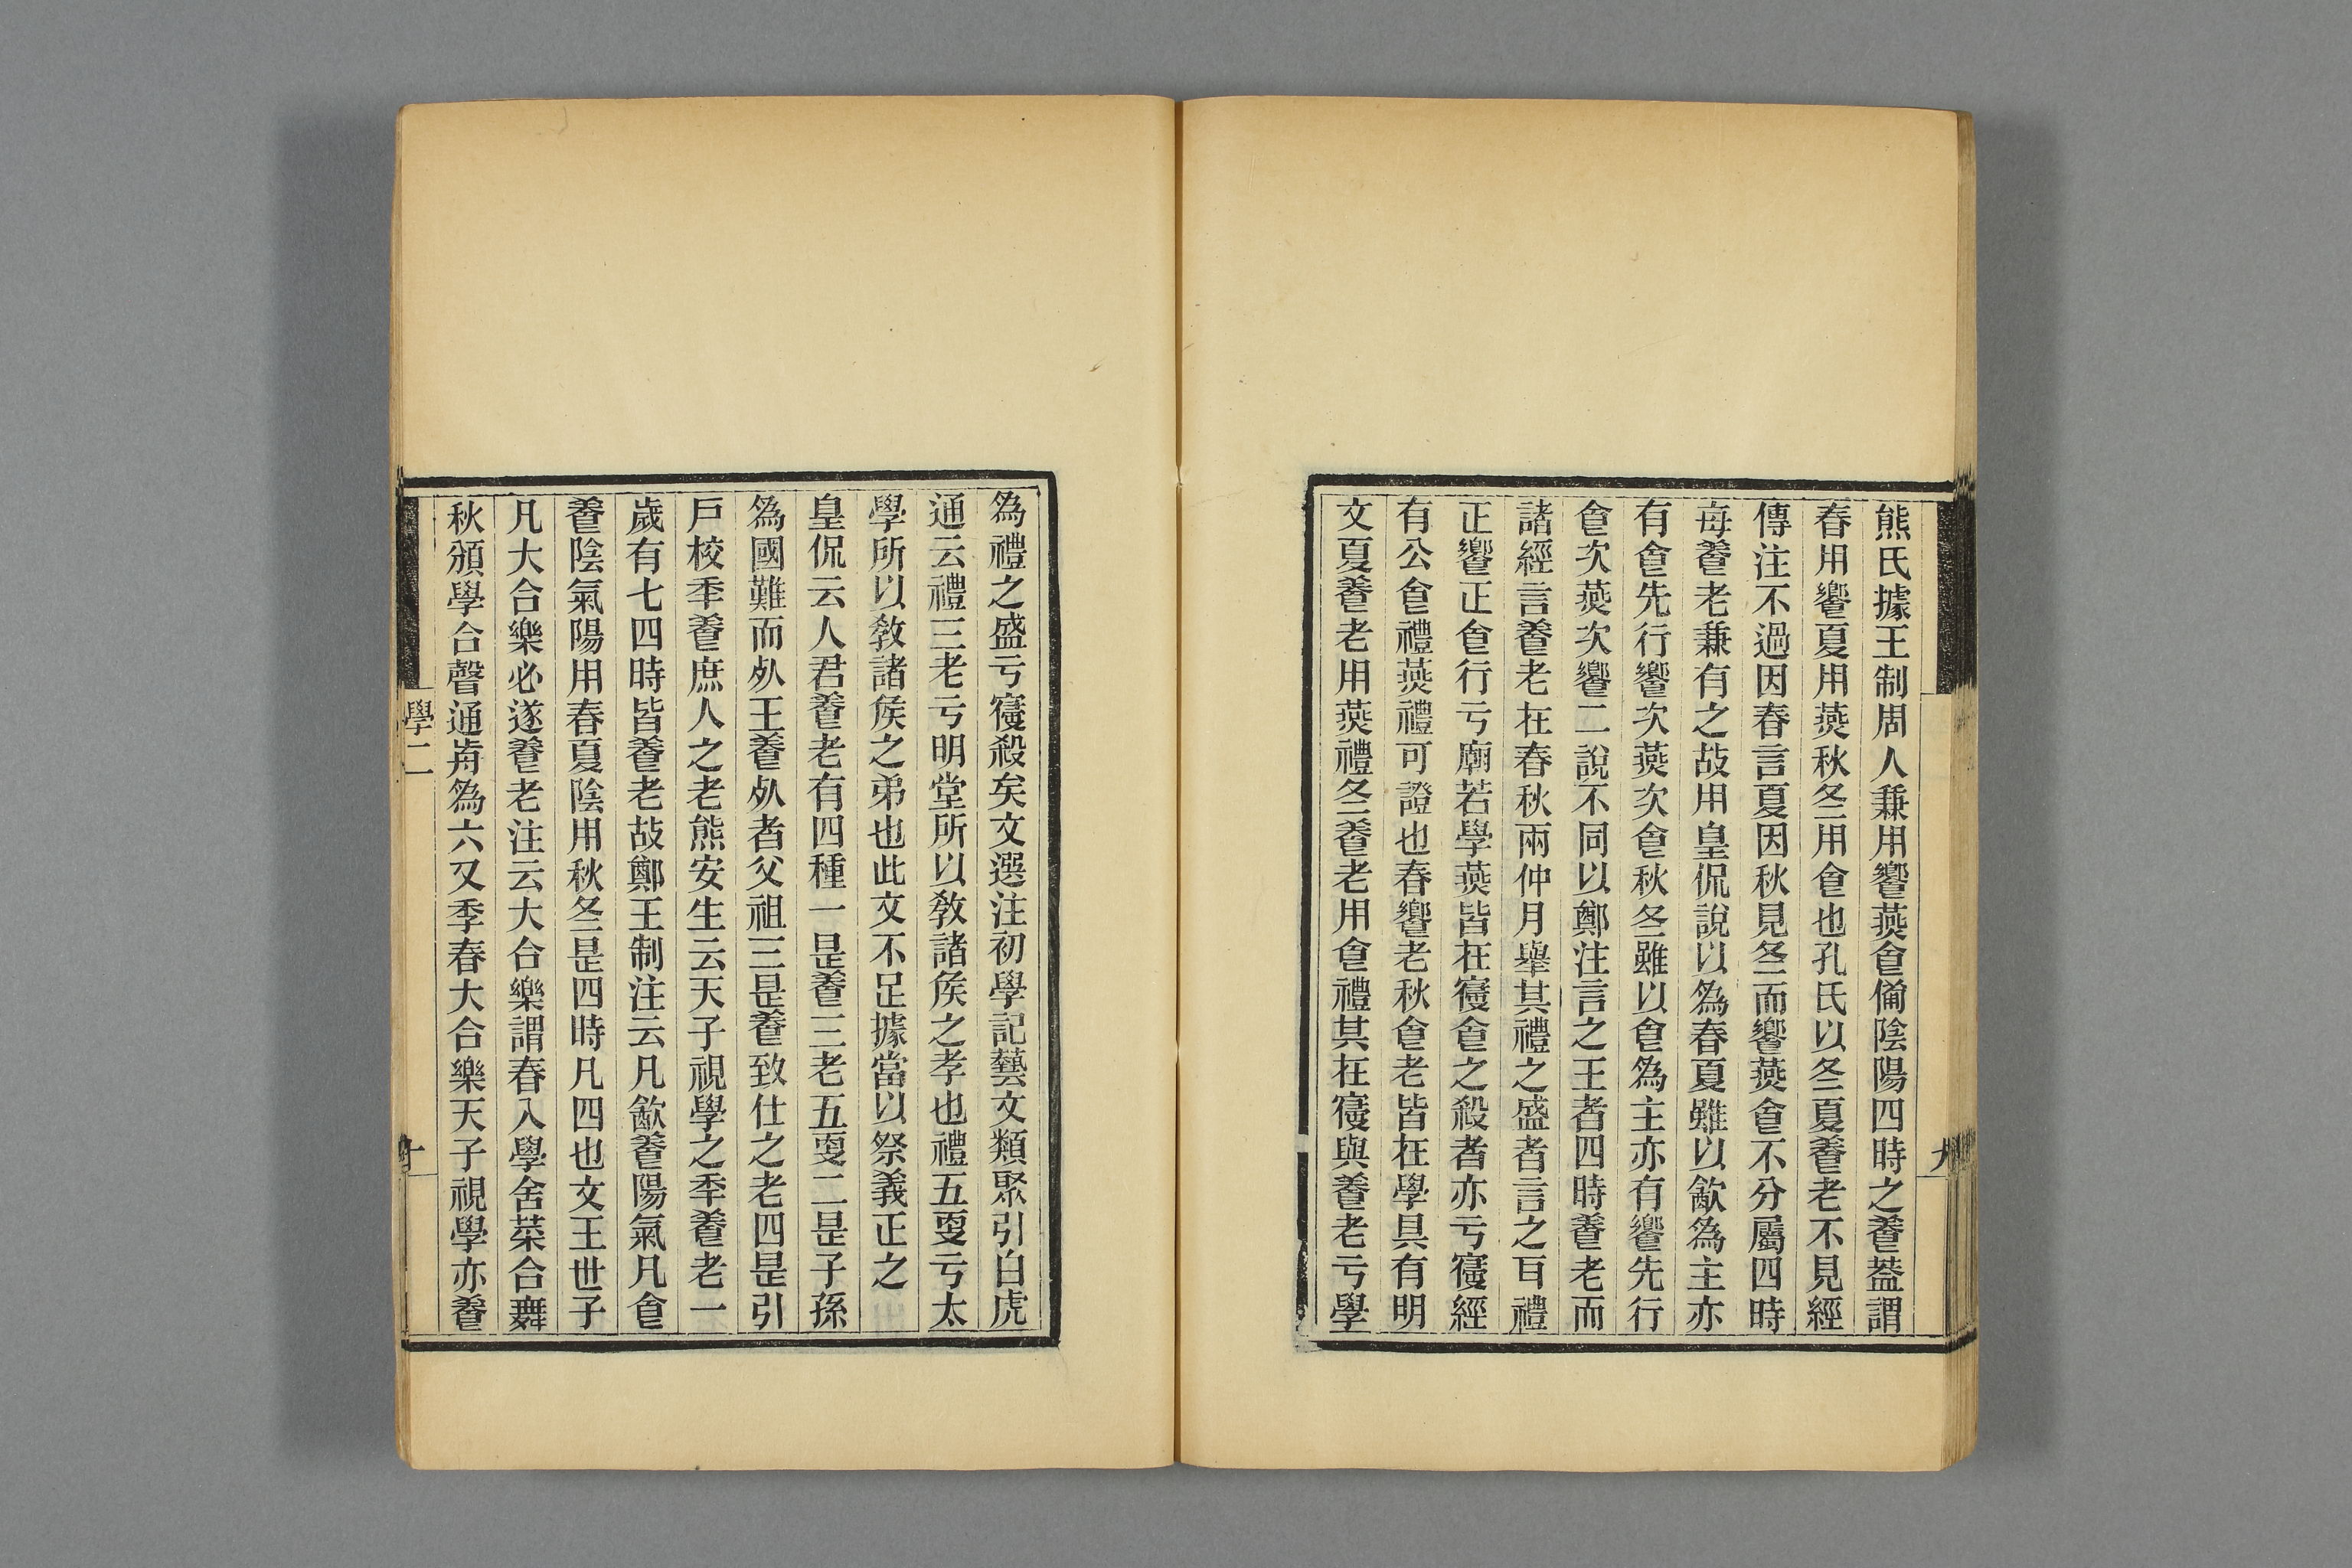 熊氏據王制周人兼用饗燕㑹僃陰陽四時之養葢謂
春用饗夏用燕秋冬用㑹也孔氏以冬夏養老不見經
傳注不過因春言夏因秋見冬而饗燕㑹不分屬四時
每養老兼有之故用皇侃說以為春夏雖以㱃為主亦
有㑹先行饗次燕次㑹秋冬雖以㑹為主亦有饗先行
㑹次燕次饗二說不同以鄭注言之王者四時養老而
諸經言養老在春秋兩仲月舉其禮之盛者言之耳禮
正饗正㑹行亏廟若學燕皆在寑㑹之殺者亦亏寑經
有公㑹禮燕禮可證也春饗老秋㑹老皆在學具有明
文夏養老用燕禮冬養老用㑹禮其在寑與養老亏學
為禮之盛亏寑殺矣文選注初學記藝文類聚引白虎
通云禮三老亏明堂所以敎諸矦之孝也禮五叟亏太
學所以敎諸矦之弟也此文不足據當以祭義正之
皇侃云人君養老有四種一是養三老五叟二是子孫
為國難而㱙王養㱙者父祖三是養致仕之老四是引
戶校秊養庶人之老熊安生云天子視學之秊養老一
歲有七四時皆養老故鄭王制注云凡㱃養陽氣凡㑹
養陰氣陽用春夏陰用秋冬是四時凡四也文王世子
凡大合樂必遂養老注云大合樂謂春入學舍菜合舞
秋頒學合聲通歬為六又季春大合樂天子視學亦養
學二